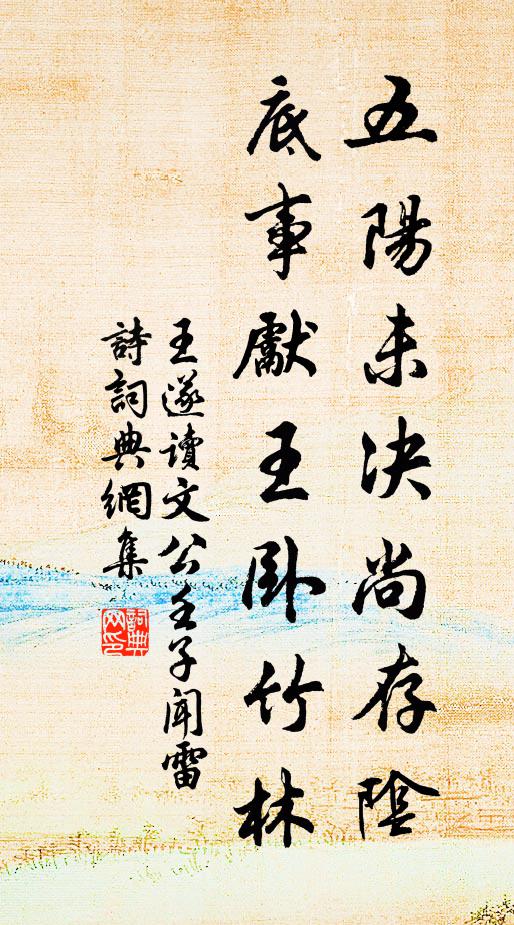 五陽未決尚存陰
底事獻王卧竹林
王遂讀文公壬子闻雷
詩詞典網集
詞典
网印